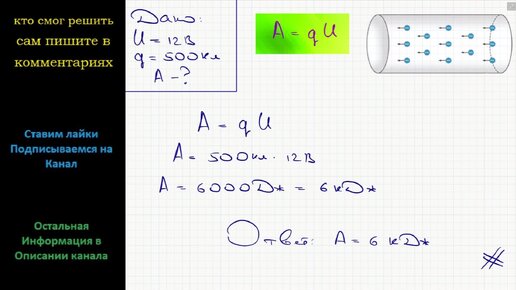 кто смог решить
сам пишите в
комментариях
Ставим лайки
Подписываемся на
Канал
Остальная
Информация в
Описании канала
Дано:
U = 12 В
q = 500 Кл
A - ?
A = q U
A = q U
A = 500 Кл · 12 В
A = 6000 Дж = 6 кДж
Ответ: A = 6 кДж